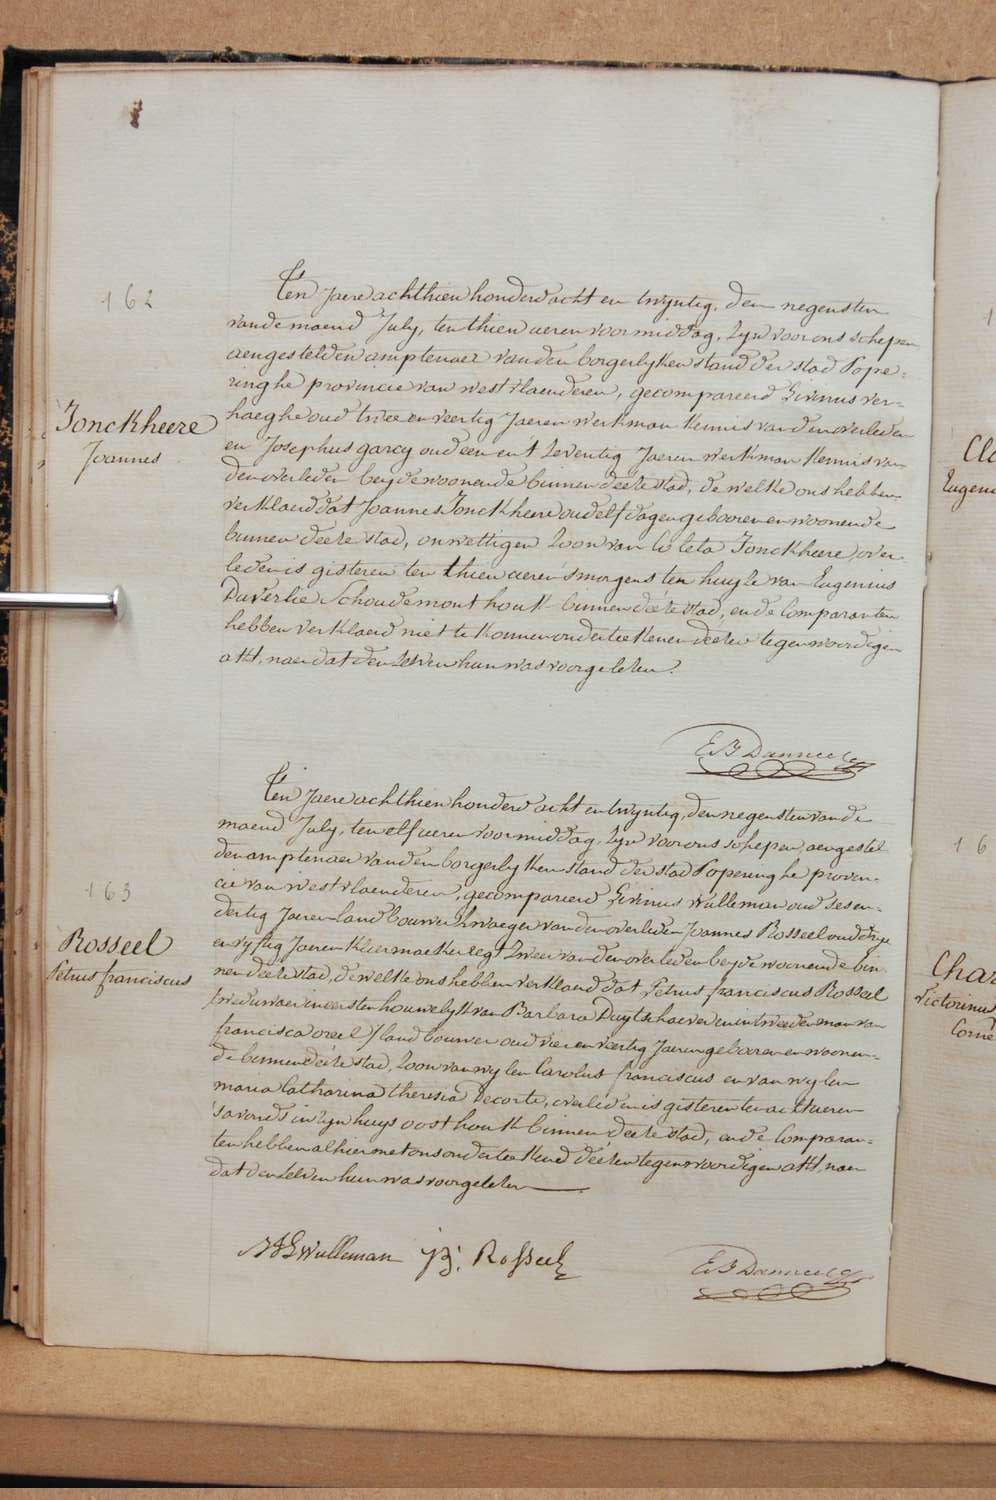 162
Jonckheere
Joannes
Ten Jaere achthien honderd acht en twyntig, den negensten
van de maend July, ten thien ueren voormiddag, zyn voor ons schepen
aengestelden amptenaer van den borgerlyken stand der stad Pope-
ringhe provincie van westvlaenderen, gecompareerd Livinus ver-
haeghe oud twee en veertig Jaeren werkman kennis van den overleden
en Josephus garcy oud een en t zeventig Jaeren werkman kennis van
den overleden beyde woonende binnen deéze stad, de welke ons hebben
verklaerd dat Joannes Jonckheere oud elf dagen gebooren en woonende
binnen deeze stad, onwettigen zoon van Coleta Jonckheere, over-
leden is gisteren ten thien ueren smorgens ten huyze van Eugenius
Daverlie Schoudemonthouk binnen deéze stad, en de Comparanten
hebben verklaerd niet te konnen onderteekenen deezen tegenwoordigen
akt, naer dat den zelven hun was voorgelezen.
E B Danneel
163
Rosseel
Petrus franciscus
Ten Jaere achthien honderd acht en twyntig, den negensten van de
maend July, ten elf ueren voormiddag, zyn voor ons schepen, aengestel
den amptenaer van den borgerlyken stand der stad Poperinghe provin-
cie van westvlaenderen, gecompareerd Livinus Wulleman oud sesen-
dertig Jaeren landbouwer zwaeger van den overleden Joannes Rosseel oud drye
en vyftig Jaeren kleermaeker regt zweer van den overleden beyde woonende bin-
nen deéze stad, de welke ons hebben verklaerd dat Petrus franciscus Rosseel
weduwaer in eersten houwelyk van Barbara Duytschaever en in tweeden man van
francisca oreel / landbouwer oud vier en veertig Jaeren gebooren en woonen-
de binnen deéze stad, zoon van wylen Carolus franciscus en van wylen
maria Catharina theresia Decorte, overleden is gisteren ten acht ueren
s'avonds in zyn huys oosthouk binnen deeze stad, en de Comparan-
ten hebben alhier met ons onderteekend deézen tegenwoordigen akt, naer
dat den zelven hun was voorgelezen
Wulleman Rosseel
E B Danneel
Eugeni
16
Char
Victorinus
Corne